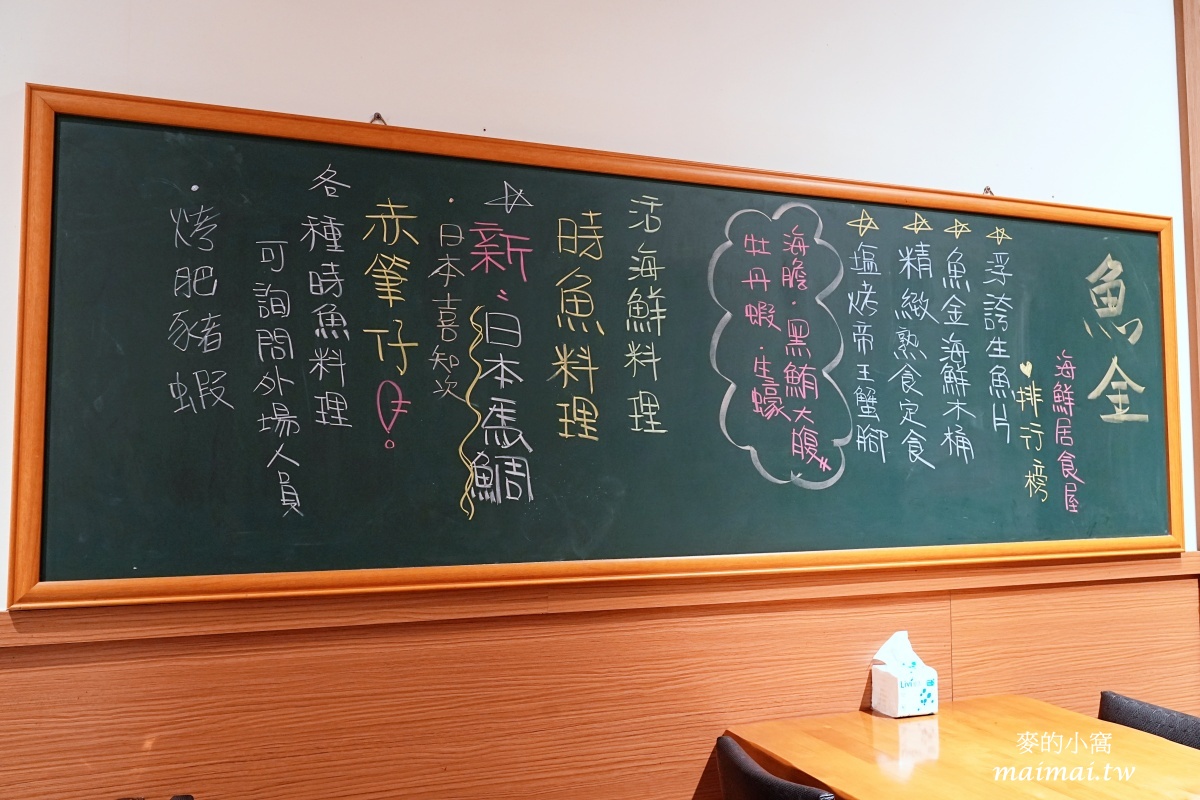 魚金
海鮮居食屋
排行榜
浮誇生魚片
魚金海鮮木桶
精緻熟食定食
塩烤帝王蟹腳
海膽·黑鮪大腹
牡丹蝦·生蠔
活海鮮料理
時魚料理
新:日本馬鯛
·日本喜知次
赤筆仔!
各種時魚料理
可詢問外場人員
·烤肥豬蝦
Livi
麥的小窩
maimai.tw